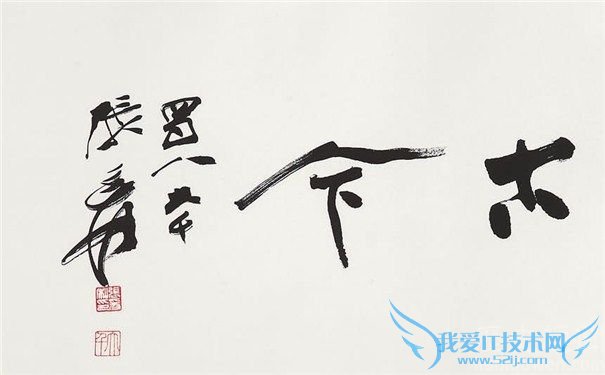 古今
蜀人大千
張爰
我爱IT技术网
www.52ij.com